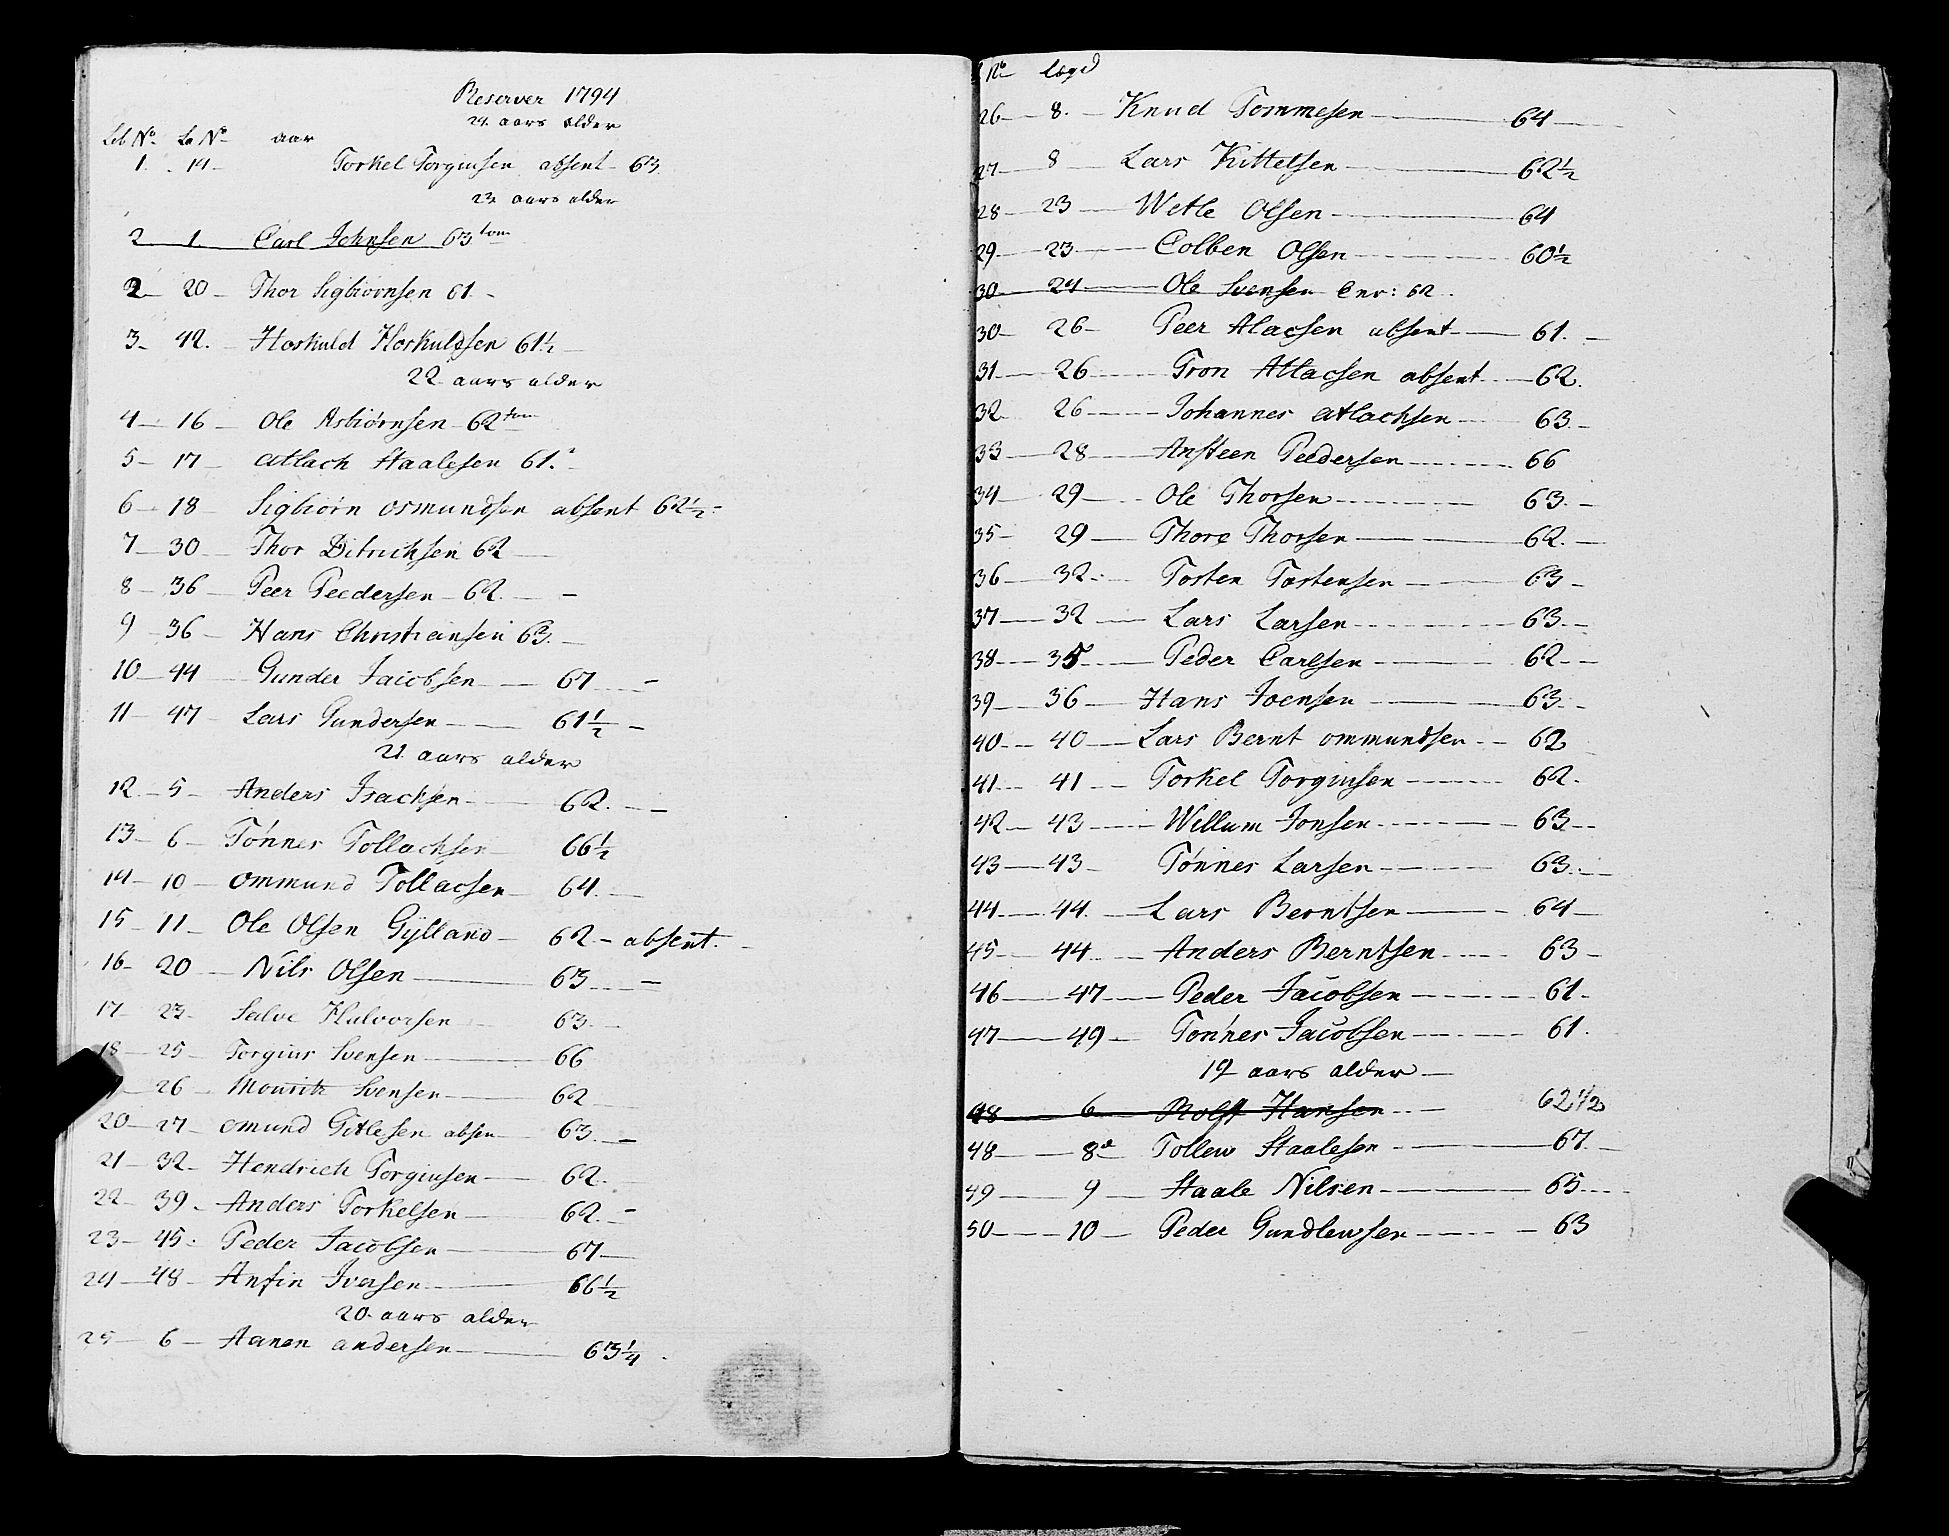 Reserver 1794
24 aars alder
Lb No Le No aar
1. 14 Torkel Torgiusen absent 63
23 aars alder
2 1 Carl Johnsen 63 tom
2 20 Thor Sigbiörnsen 61
3 42. Hoskuld Hoskuldsen 61½
22 aars alder
4 16 Ole Asbiörnsen 62 tom
5 17 Atlach Staalesen 61.
6 18 Sigbiörn osmundsen absent 62½
7 30 Thor Ditrichsen 62
8 36 Peer Peedersen 62.
9 36 Hans Christiansen 63.
10 44 Gunder Jacobsen 67
11 47 Lars Gundersen 61½
21 aars alder
12 5 Anders Isachsen 62.
13 6 Tönnes Tollachsen 66½
14 10 ommund Tollacsen 64.
15 11 Ole Olsen Gÿlland 62. absent.
16 20 Nils Olsen 63
17 23 Salve Halvorsen 63.
18 25 Torgius Svensen 66
26 Mouritz Svensen 62
20 27 omund Gitlesen absen 63.
21 32 Hendrich Torgiusen 62.
22 39 Anders Torkelsen 62.
23 45 Peder Jacobsen 67
24 48 Anfin Iversen 66½
20 aars alder
25 6 Aanen andersen 63¼
No lægd
26 8. Knud Tommesen 64
27 8 Lars Kittelsen 62½
28 23 Wetle Olsen 64
29 23 Colben Olsen 60½
30 24 Ole Svensen Enr: 62.
30 26 Peer Alacsen absent 61.
31 26 Tron Atlacsen absent 62.
32 26 Johannes Atlachsen 63.
33 28 Ansteen Peedersen 66
34 29 Ole Thorsen 63.
35 29 Thore Thorsen 62.
36 32 Tosten Tostensen 63
37 32 Lars Larsen 63
38 35 Peder Carlsen 62
39 36 Hans Joensen 63
40 40 Lars Bernt ommundsen 62
41 41 Torkel Torgiusen 62.
42 43 Willum Jonsen 63
43 43 Tönnes Larsen 63.
44 44 Lars Berntsen 64
45 44 Anders Berntsen 63
46 47 Peder Jacobsen 61.
47 49 Tönnes Jacobsen 61.
19 aars alder
48 6 Rolff Hansen 62 1/2
48 8 Tollew Staalesen 67
49 9 Staale Nilsen 65
50 10 Peder Gundlewsen 63